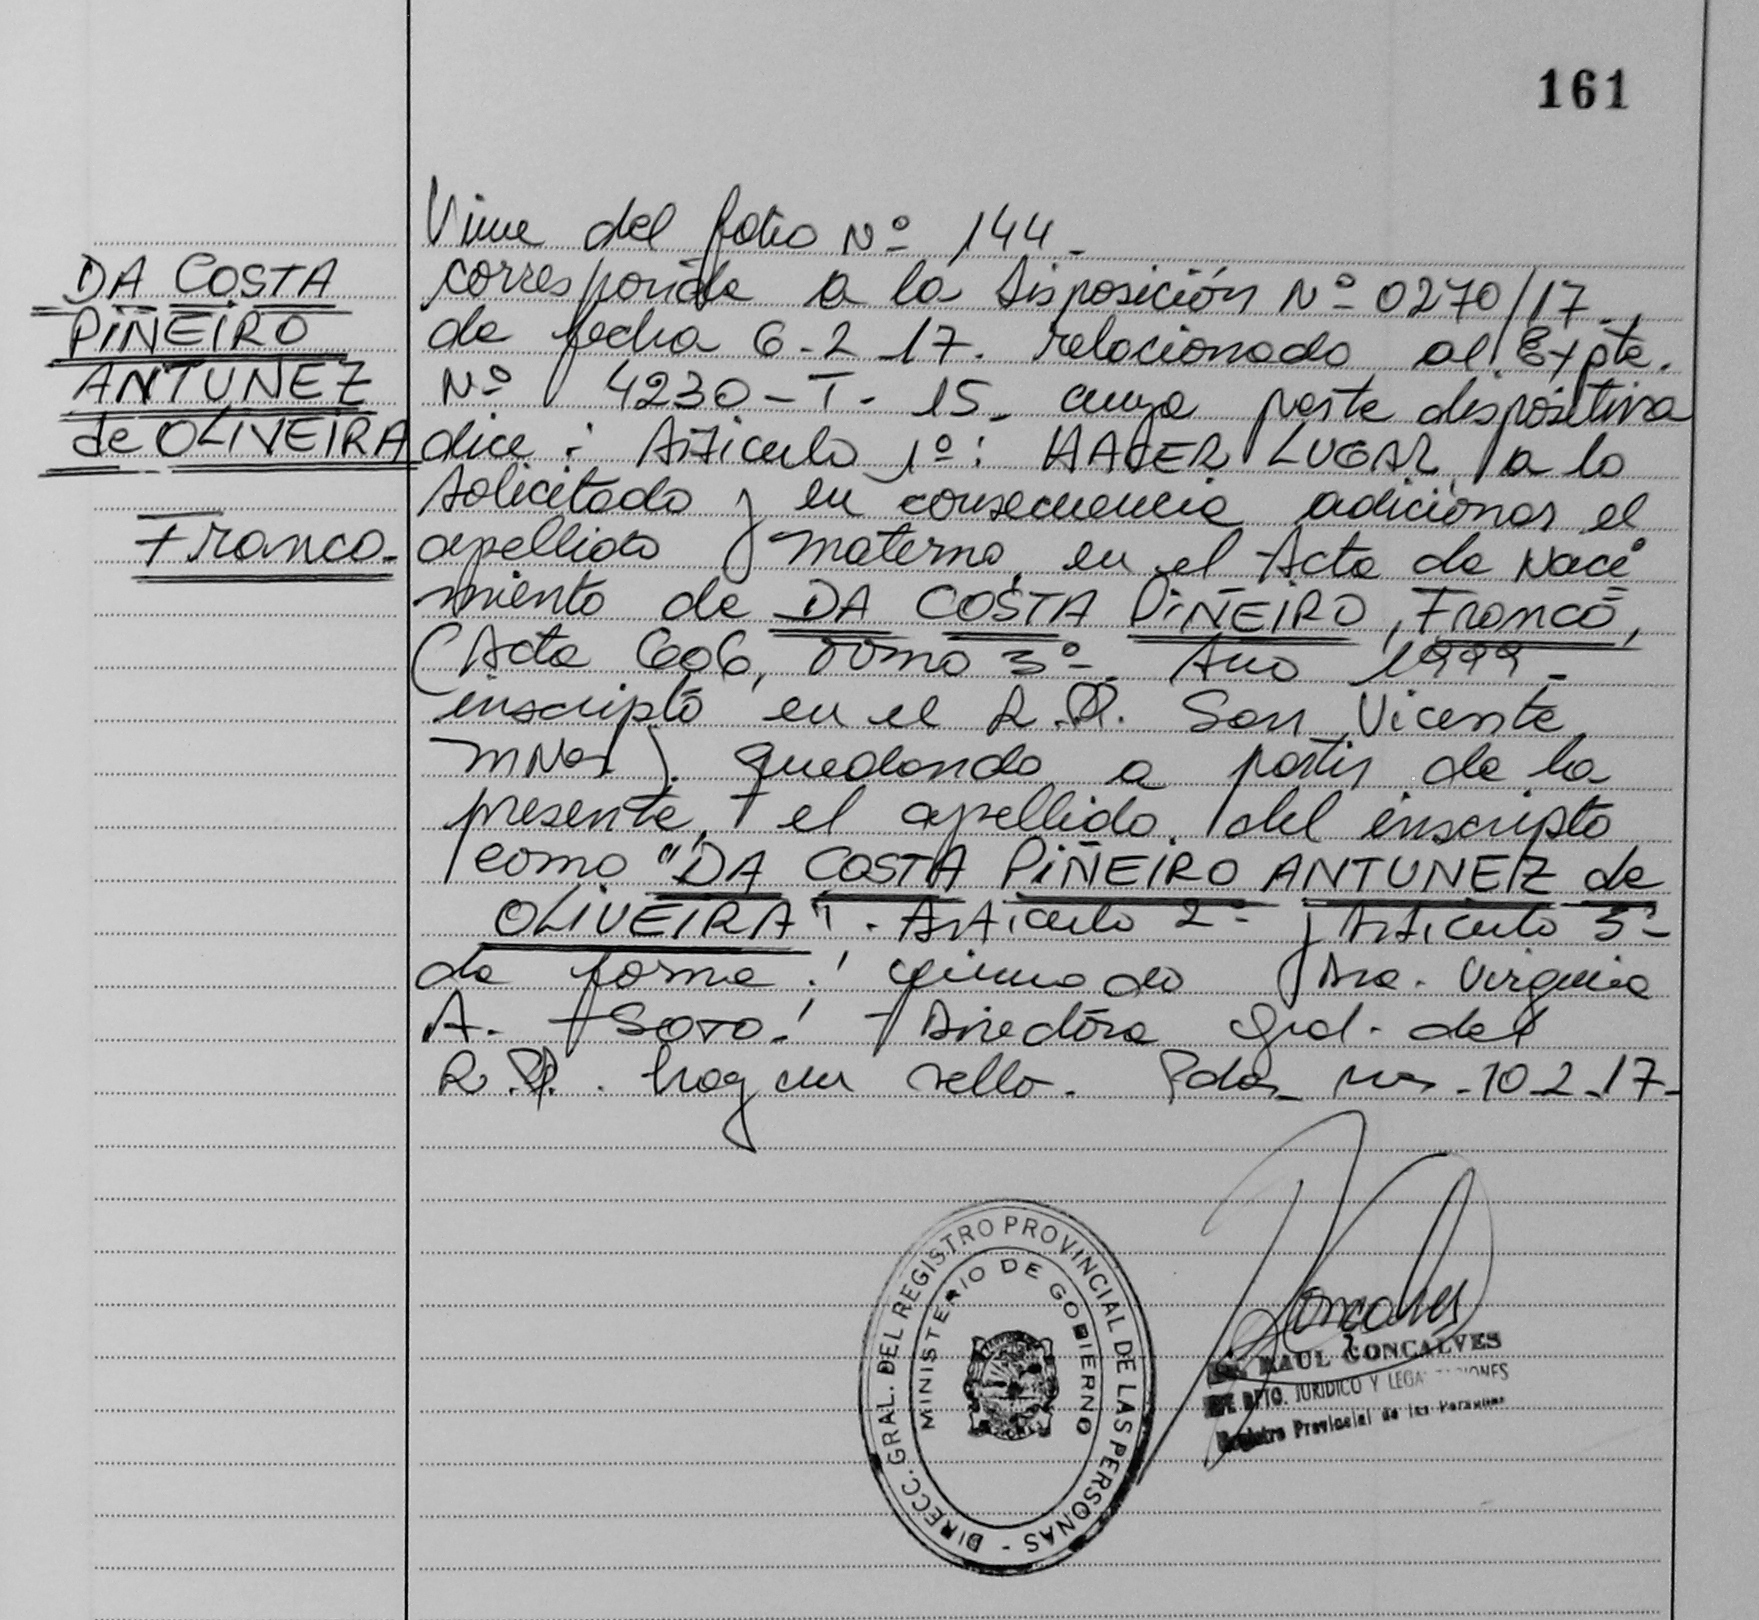 161
Viene del folio Nº 144-
DA COSTA
PIÑEIRO
ANTUNEZ
de OLIVEIRA
Franco.-
corresponde a la Disposición Nº 0270/17.
de fecha 6-2-17. relacionado al Expte.
Nº 4230-T-15. cuya parte dispositiva
dice: Artículo 1º: HACER LUGAR a lo
solicitado y en consecuencia adicionar el
apellido materno, en el Acta de Naci
miento de DA COSTA PIÑEIRO, Franco,
(Acta 606, Tomo 3º- Año 1999-
inscripto en el R.P. San Vicente
Mnes). quedando a partir de la
presente, el apellido del inscripto
como "DA COSTA PIÑEIRO ANTUNEZ de
OLIVEIRA". Artículo 2º y Artículo 3º-
de forma: firmado Dra. Virginia
A. SOTO. Directora Gral. del
R.P. hay un sello. Pdas Mnes-10-2-17-
DIRECC. GRAL. DEL REGISTRO PROVINCIAL DE LAS PERSONAS -
MINISTERIO DE GOBIERNO
RAUL GONCALVES
DPTO. JURIDICO Y
Registro Provincial de las Personas